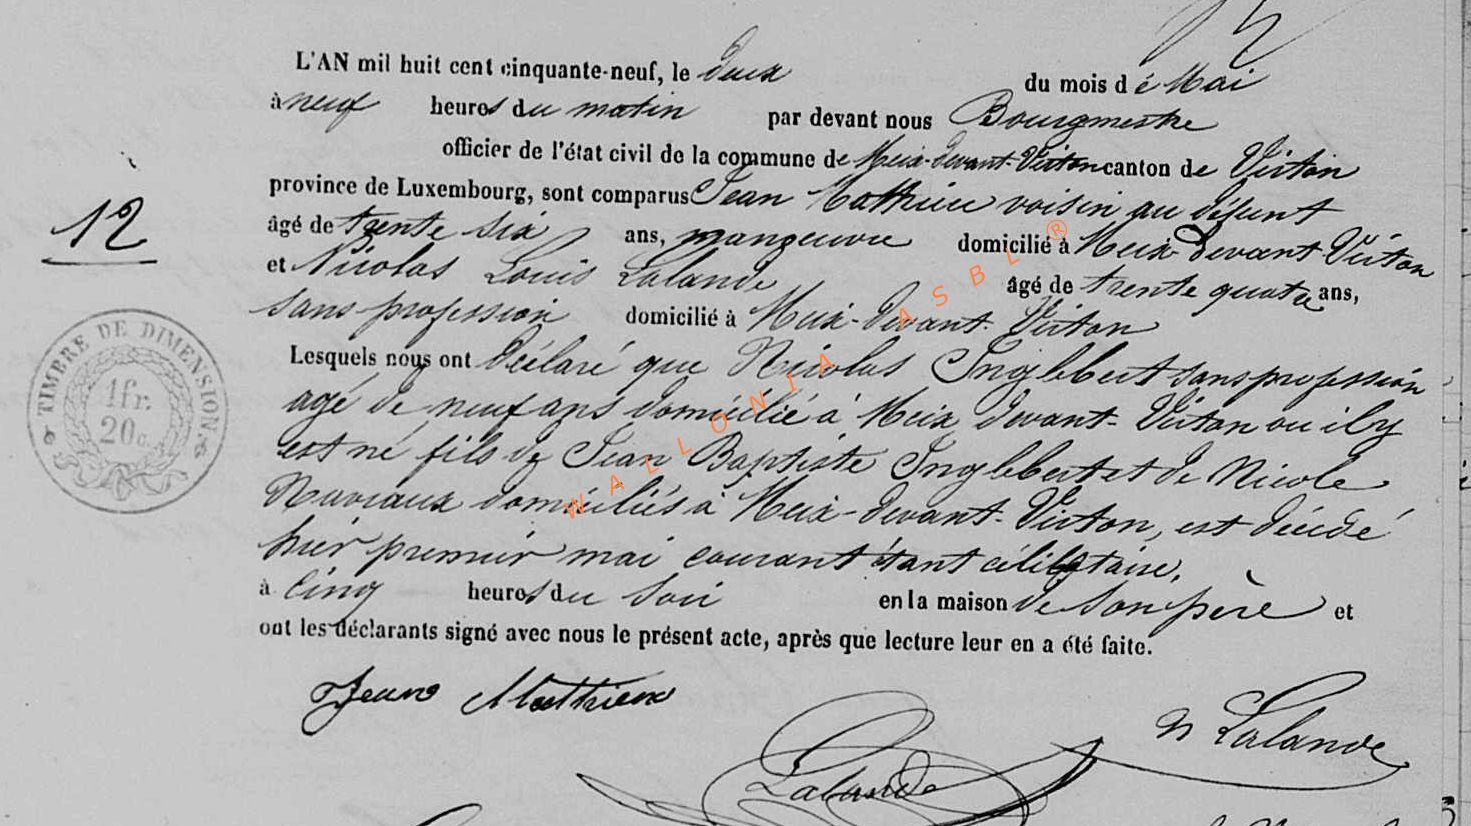 L'AN mil huit cent cinquante-neuf, le deux du mois de Mai
à neuf heures du matin par devant nous Bourgmestre
officier de l'état civil de la commune de Meix-devant-Virton canton de Virton
province de Luxembourg, sont comparus Jean Mathieu voisin au défunt
12
âgé de trente six ans, manoeuvre domicilié à Meix-devant Virton
et Nicolas Louis Lalande âgé de trente quatre ans,
sans profession domicilié à Meix-devant-Virton
Lesquels nous ont déclaré que Nicolas Inglebert sans profession
agé de neuf ans domicilié à Meix devant-Virton ou il y
est né fils de Jean Baptiste Inglebert et de Nicole
domiciliés à Meix-devant-Virton, est décédé
hier premier mai courant étant célibataire.
à cinq heures du soir en la maison de son père et
ont les déclarants signé avec nous le présent acte, après que lecture leur en a été faite.
Jean Mathieu
N Lalande
Lalande
TIMBRE DE DIMENSION
1 fr.
20 c.
WALLONIA ASBL ®